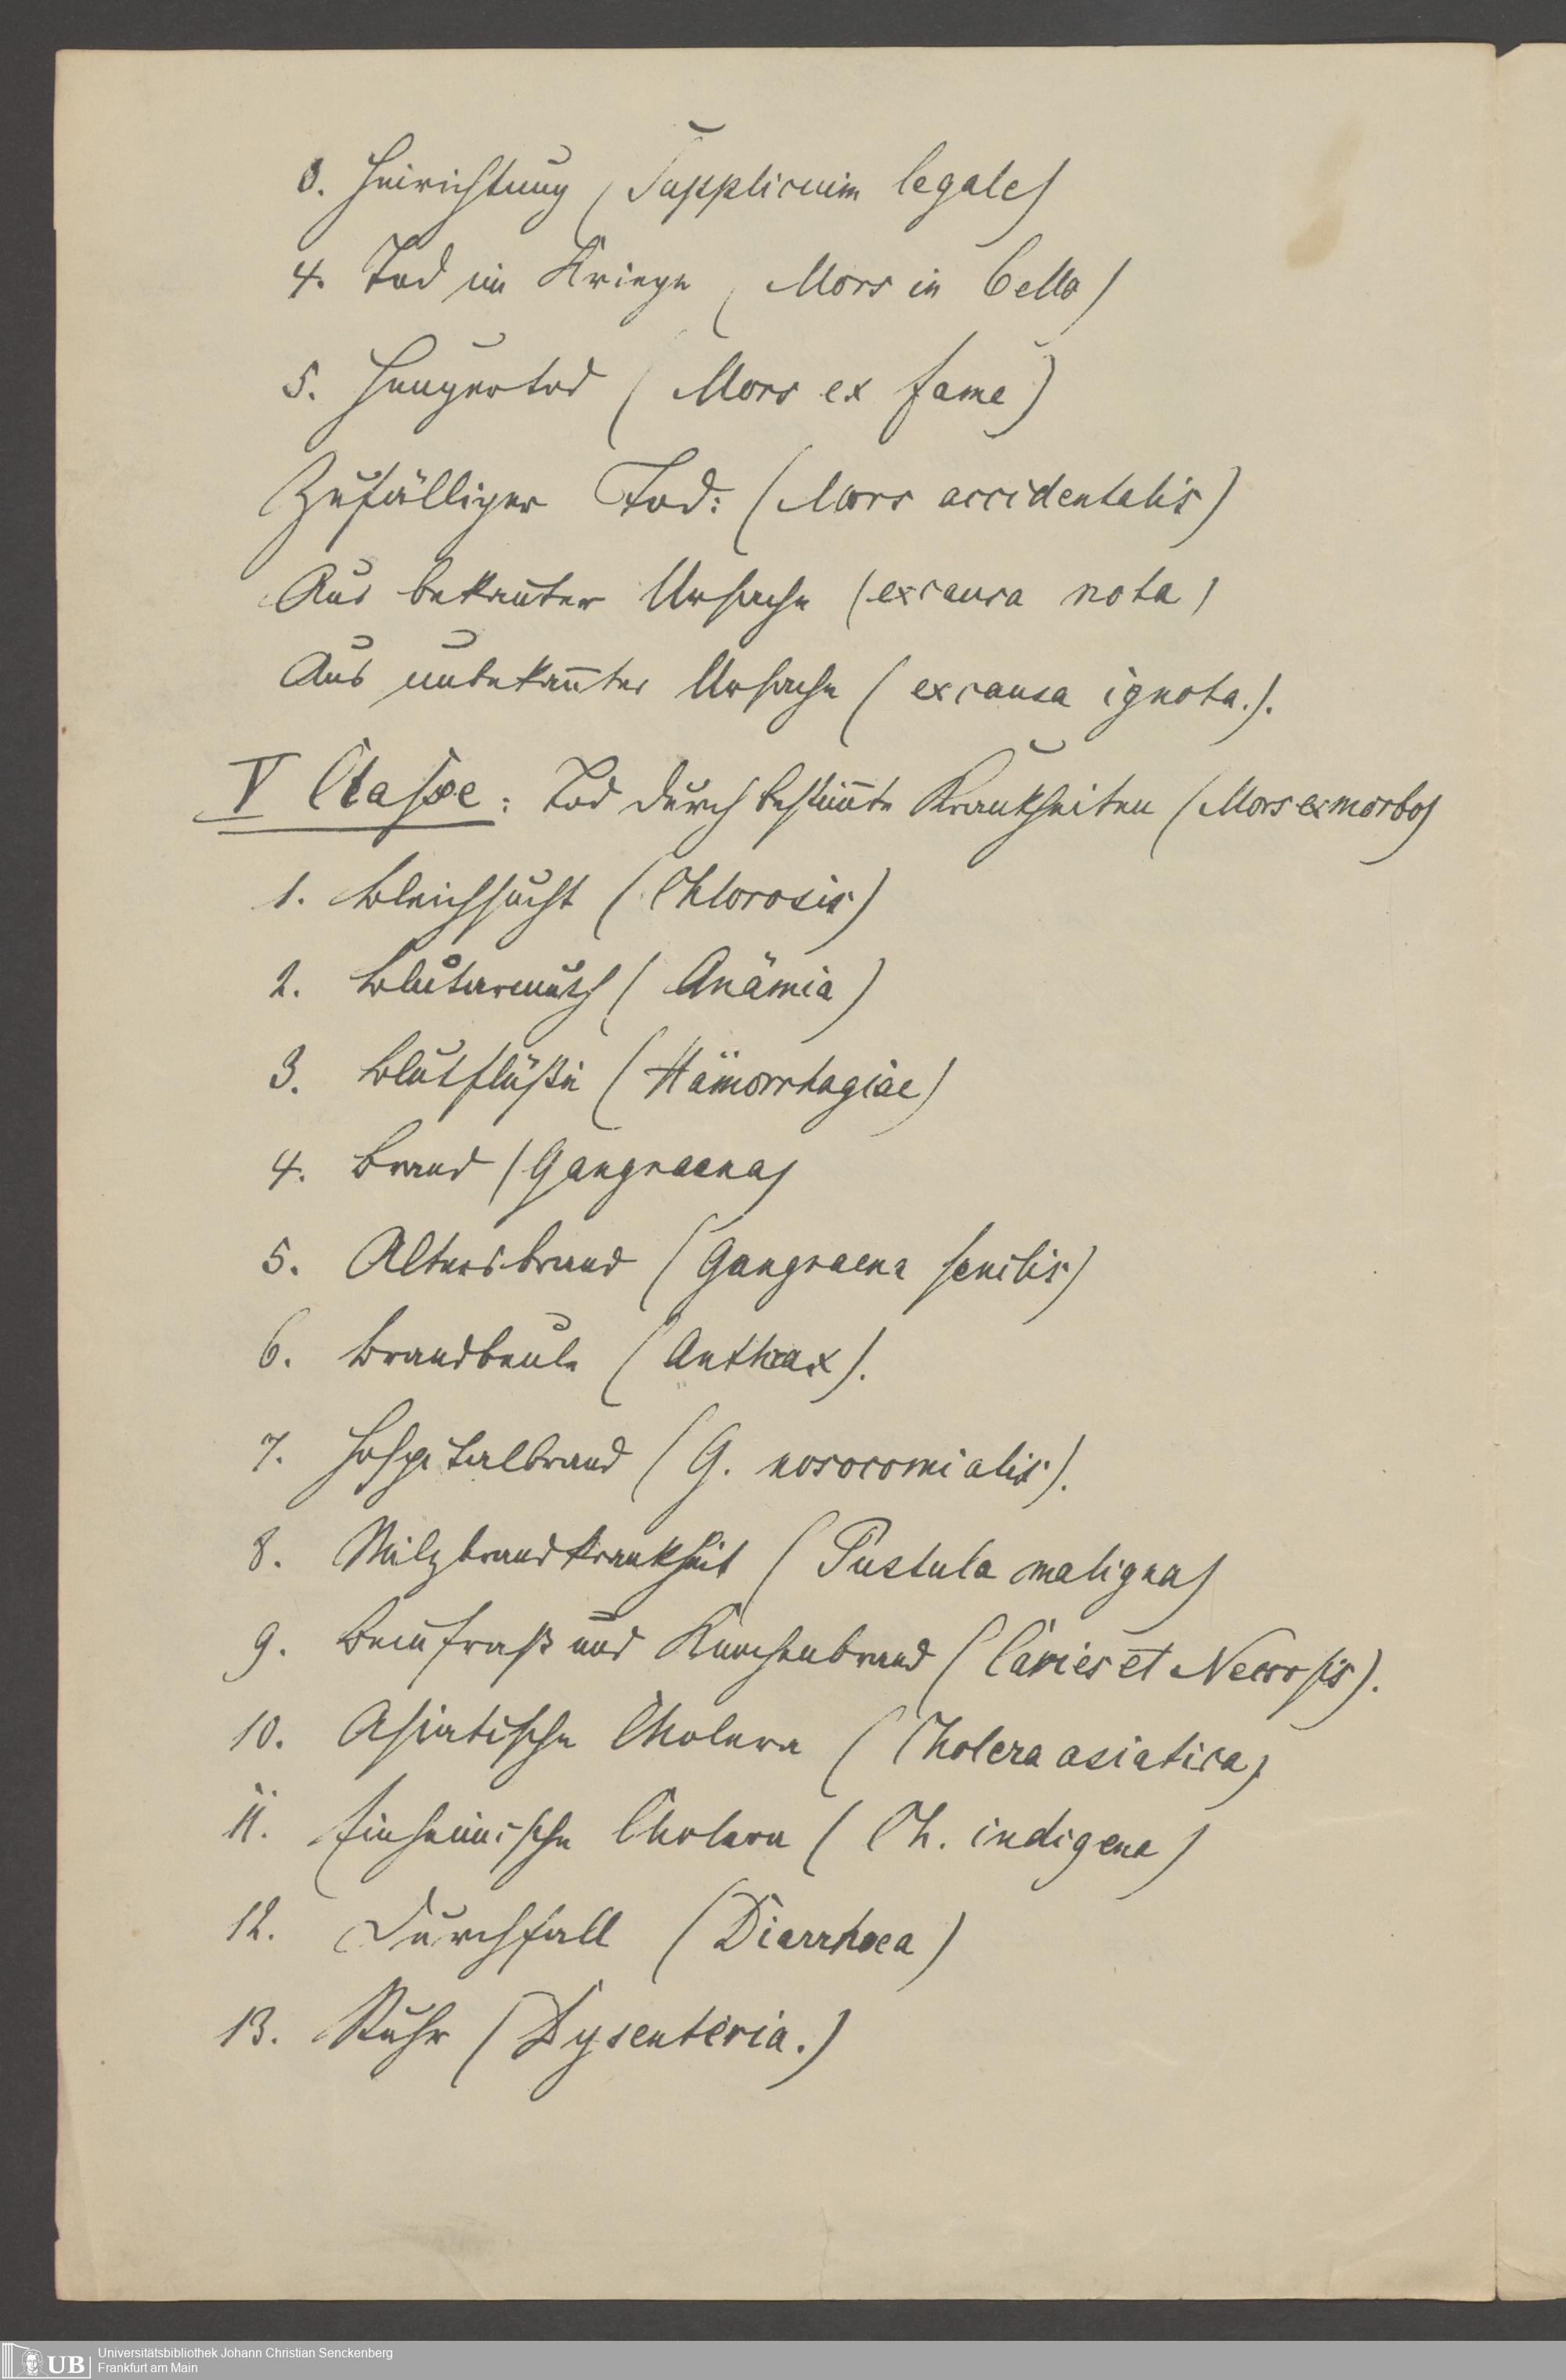 3. Hinrichtung (Supplicium legale)
4. Tod im Kriege (Mors in bello)
5. Hungertod (Mors ex fame)
Zufälliger Tod: (Mors accidentalis)
Aus bekan̅ter Ursache (ex causa nota)
Aus unbekan̅ter Ursache (ex causa ignota.).
V Classe: Tod durch bestim̅te Krankheiten (Mors ex morbo)
1. Bleichsucht (Chlorosis)
2. Blutarmuth (Anämia)
3. Blutflüße (Hämorrhagiae)
4. Brand (Gangraena)
5. Altersbrand (Gangraena senilis)
6. Brandbeule (Anthrax).
7. Hospitalbrand (G. nosocomialis).
8. Milzbrandkrankheit (Pustula maligna)
9. Beinfraß und Knochenbrand (Caries et Necrosis).
10. Asiatische Cholera (Cholera asiatica)
11. Einheimische Cholera (Ch. indigena)
12. Durchfall (Diarrhoea)
13. Ruhr (Dysenteria.)
UB Universitätsbibliothek Johann Christian Senckenberg
Frankfurt am Main